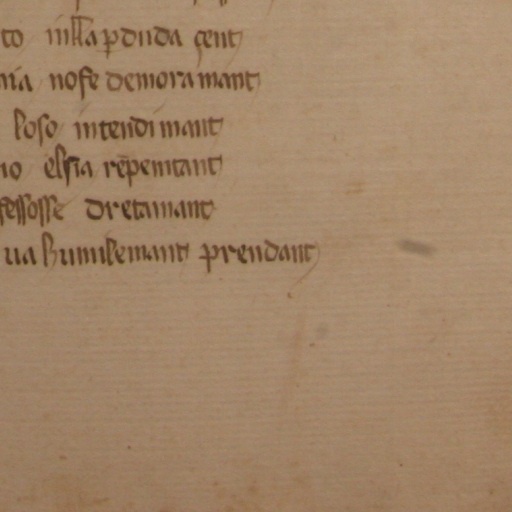 to inlla perduda çent
nia nose demoramant
loso intendimant
io elsia repentant
fessosse dretamant
ua humilemant prendant